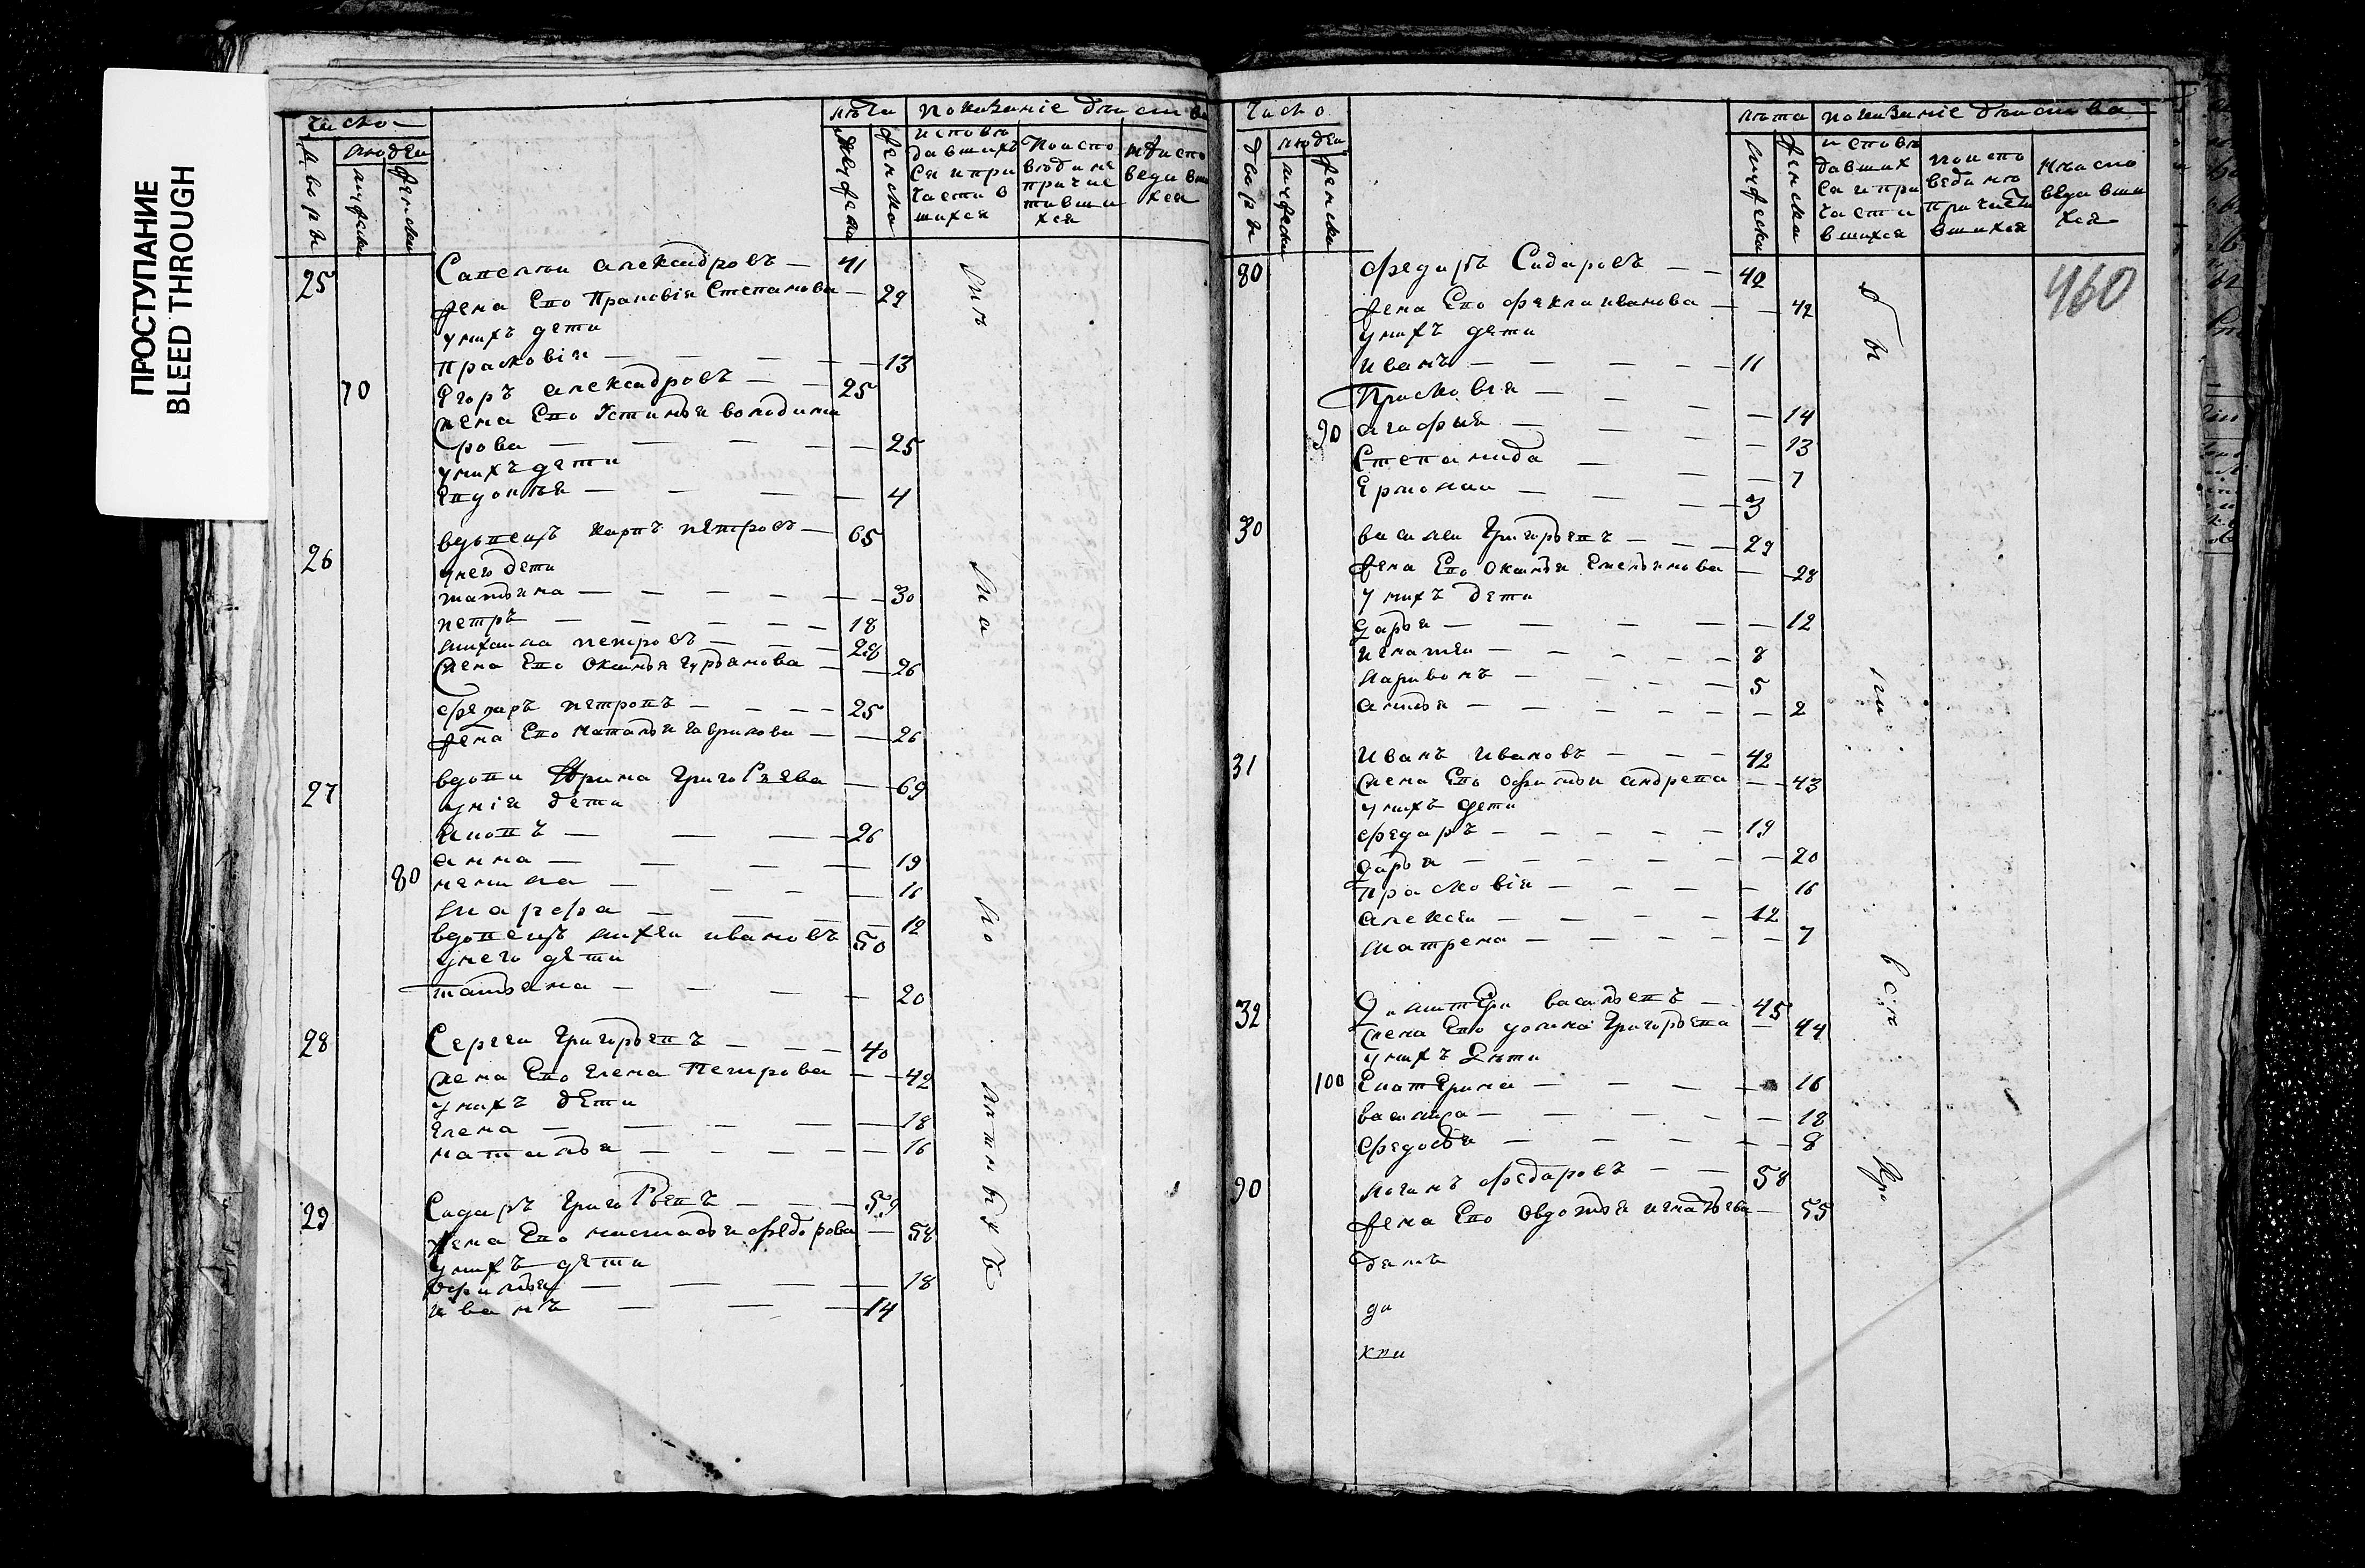 ПРОСТУПАНИЕ
BLEED THROUGH
число
людеи
лѣта показаніе дѣиства
исповѣ
давшихъ
ся и при
части в
шихся
поиспо
причас
тивши
хся
неиспо
ведавши
хся
25 Савелеи александровъ — 41
жена Его Прасковія Степанова — 29
унихъ дети
прасковія — 13
70 Егоръ александровъ — 25
жена Его Устинья володими
рова — 25
унихъ дети
Евдокѣя — 4
26 вдовецъ карпъ петровъ — 65
унего дети
татьяна — 30
петръ — 18
михаила петровъ — 28
жена Его Оксинья гурьянова — 26
федаръ петровъ — 25
жена Его наталья гаврилова — 26
27 вдова Ирина Григорьева — 69
унія дети
яковъ — 26
анна — 19
80 ненила — 16
марфа — 12
вдовецъ михеи ивановъ 50
унего дети
татьяна — 20
28 Сергеи Григорьевъ — 40
жена Его Елена Петрова — 42
унихъ дети
Елена — 18
наталья — 16
29 Сидаръ Григорьевъ — 59
жена Его настасья федорова — 58
унихъ дети
Офимья — 18
иванъ — 14
число
дворы
людеи
лѣта показаніе дѣиства
исповѣ
давших
ся и при
части
вшихся
поиспо
веданю
причасти
вшихся
неиспо
ведавши
хся
460
80 федаръ Сидаровъ — 42
жена Его фекла иванова — 42
унихъ дети
иванъ — 11
Прасковья — 14
90 агафья — 13
Степанида — 7
Ермолаи — 3
30 василеи Григорьевъ — 29
жена Его Оксинья Емельянова — 28
унихъ дети
дарья — 12
игнатеи — 8
ларивонъ — 5
анисья — 2
31 Иванъ Ивановъ — 42
жена Его Офимьи андрева — 43
унихъ дети
федаръ — 19
дарья — 20
прасковія — 16
алексеи — 12
матрена — 7
32 Дмитреи васильевъ — 45
жена Его улина Григорьева — 44
унихъ дѣти
100 Екатерина — 16
василиса — 18
федосья — 8
90 логинъ федаровъ — 58
жена Его Овдотья игнатьева — 55